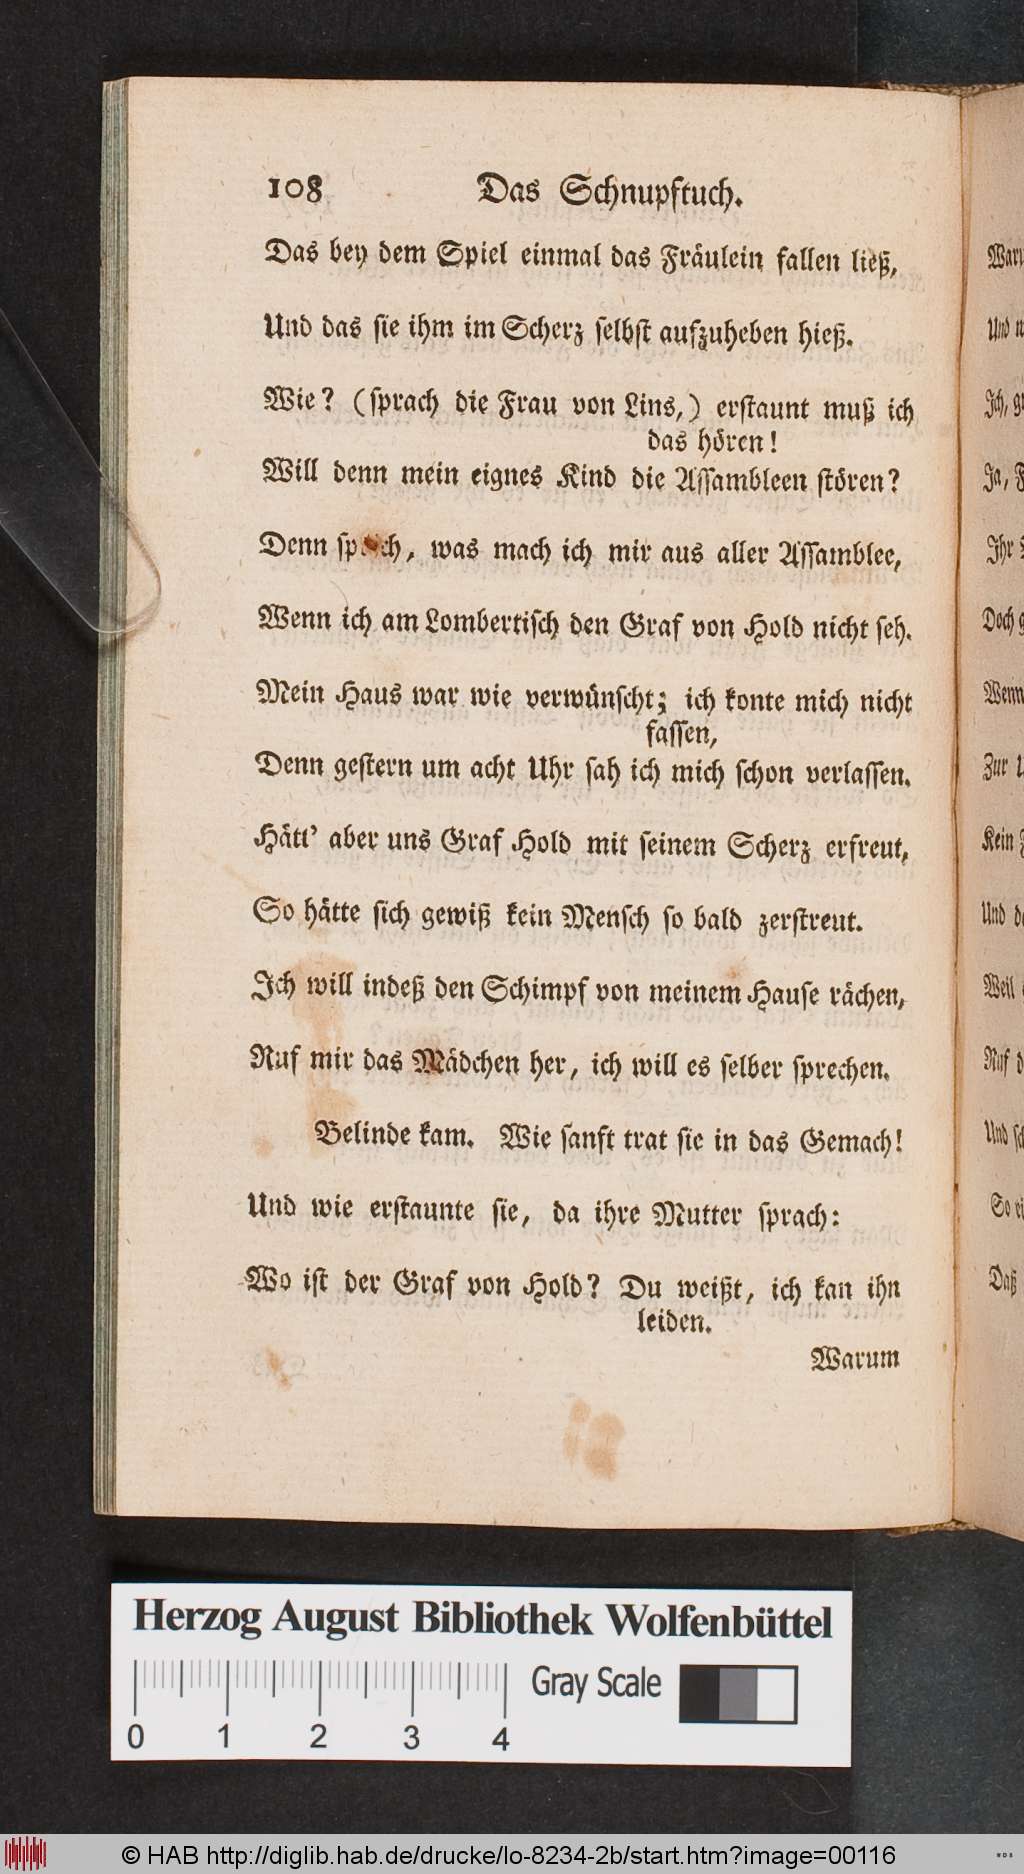 108 Das Schnupftuch.
Das bey dem Spiel einmal das Fräulein fallen ließ,
Und das sie ihm im Scherz selbst aufzuheben hieß.
Wie? (sprach die Frau von Lins,) erstaunt muß ich
das hören!
Will denn mein eignes Kind die Assambleen stören?
Denn sprich, was mach ich mir aus aller Assamblee,
Wenn ich am Lombertisch den Graf von Hold nicht seh.
Mein Haus war wie verwünscht; ich konte mich nicht
fassen,
Denn gestern um acht Uhr sah ich mich schon verlassen.
Hätt' aber uns Graf Hold mit seinem Scherz erfreut,
So hätte sich gewiß kein Mensch so bald zerstreut.
Ich will indeß den Schimpf von meinem Hause rächen,
Ruf mir das Mädchen her, ich will es selber sprechen.
Belinde kam. Wie sanft trat sie in das Gemach!
Und wie erstaunte sie, da ihre Mutter sprach:
Wo ist der Graf von Hold? Du weißt, ich kan ihn
leiden.
Warum
Und
Ich,
Ja,
Ihr
Doch
Wenn
Zur
Kein
Und
Weil
Ruf
Und
So
Daß
Herzog August Bibliothek Wolfenbüttel
Gray Scale
0 1 2 3 4
© HAB http://diglib.hab.de/drucke/lo-8234-2b/start.htm?image=00116